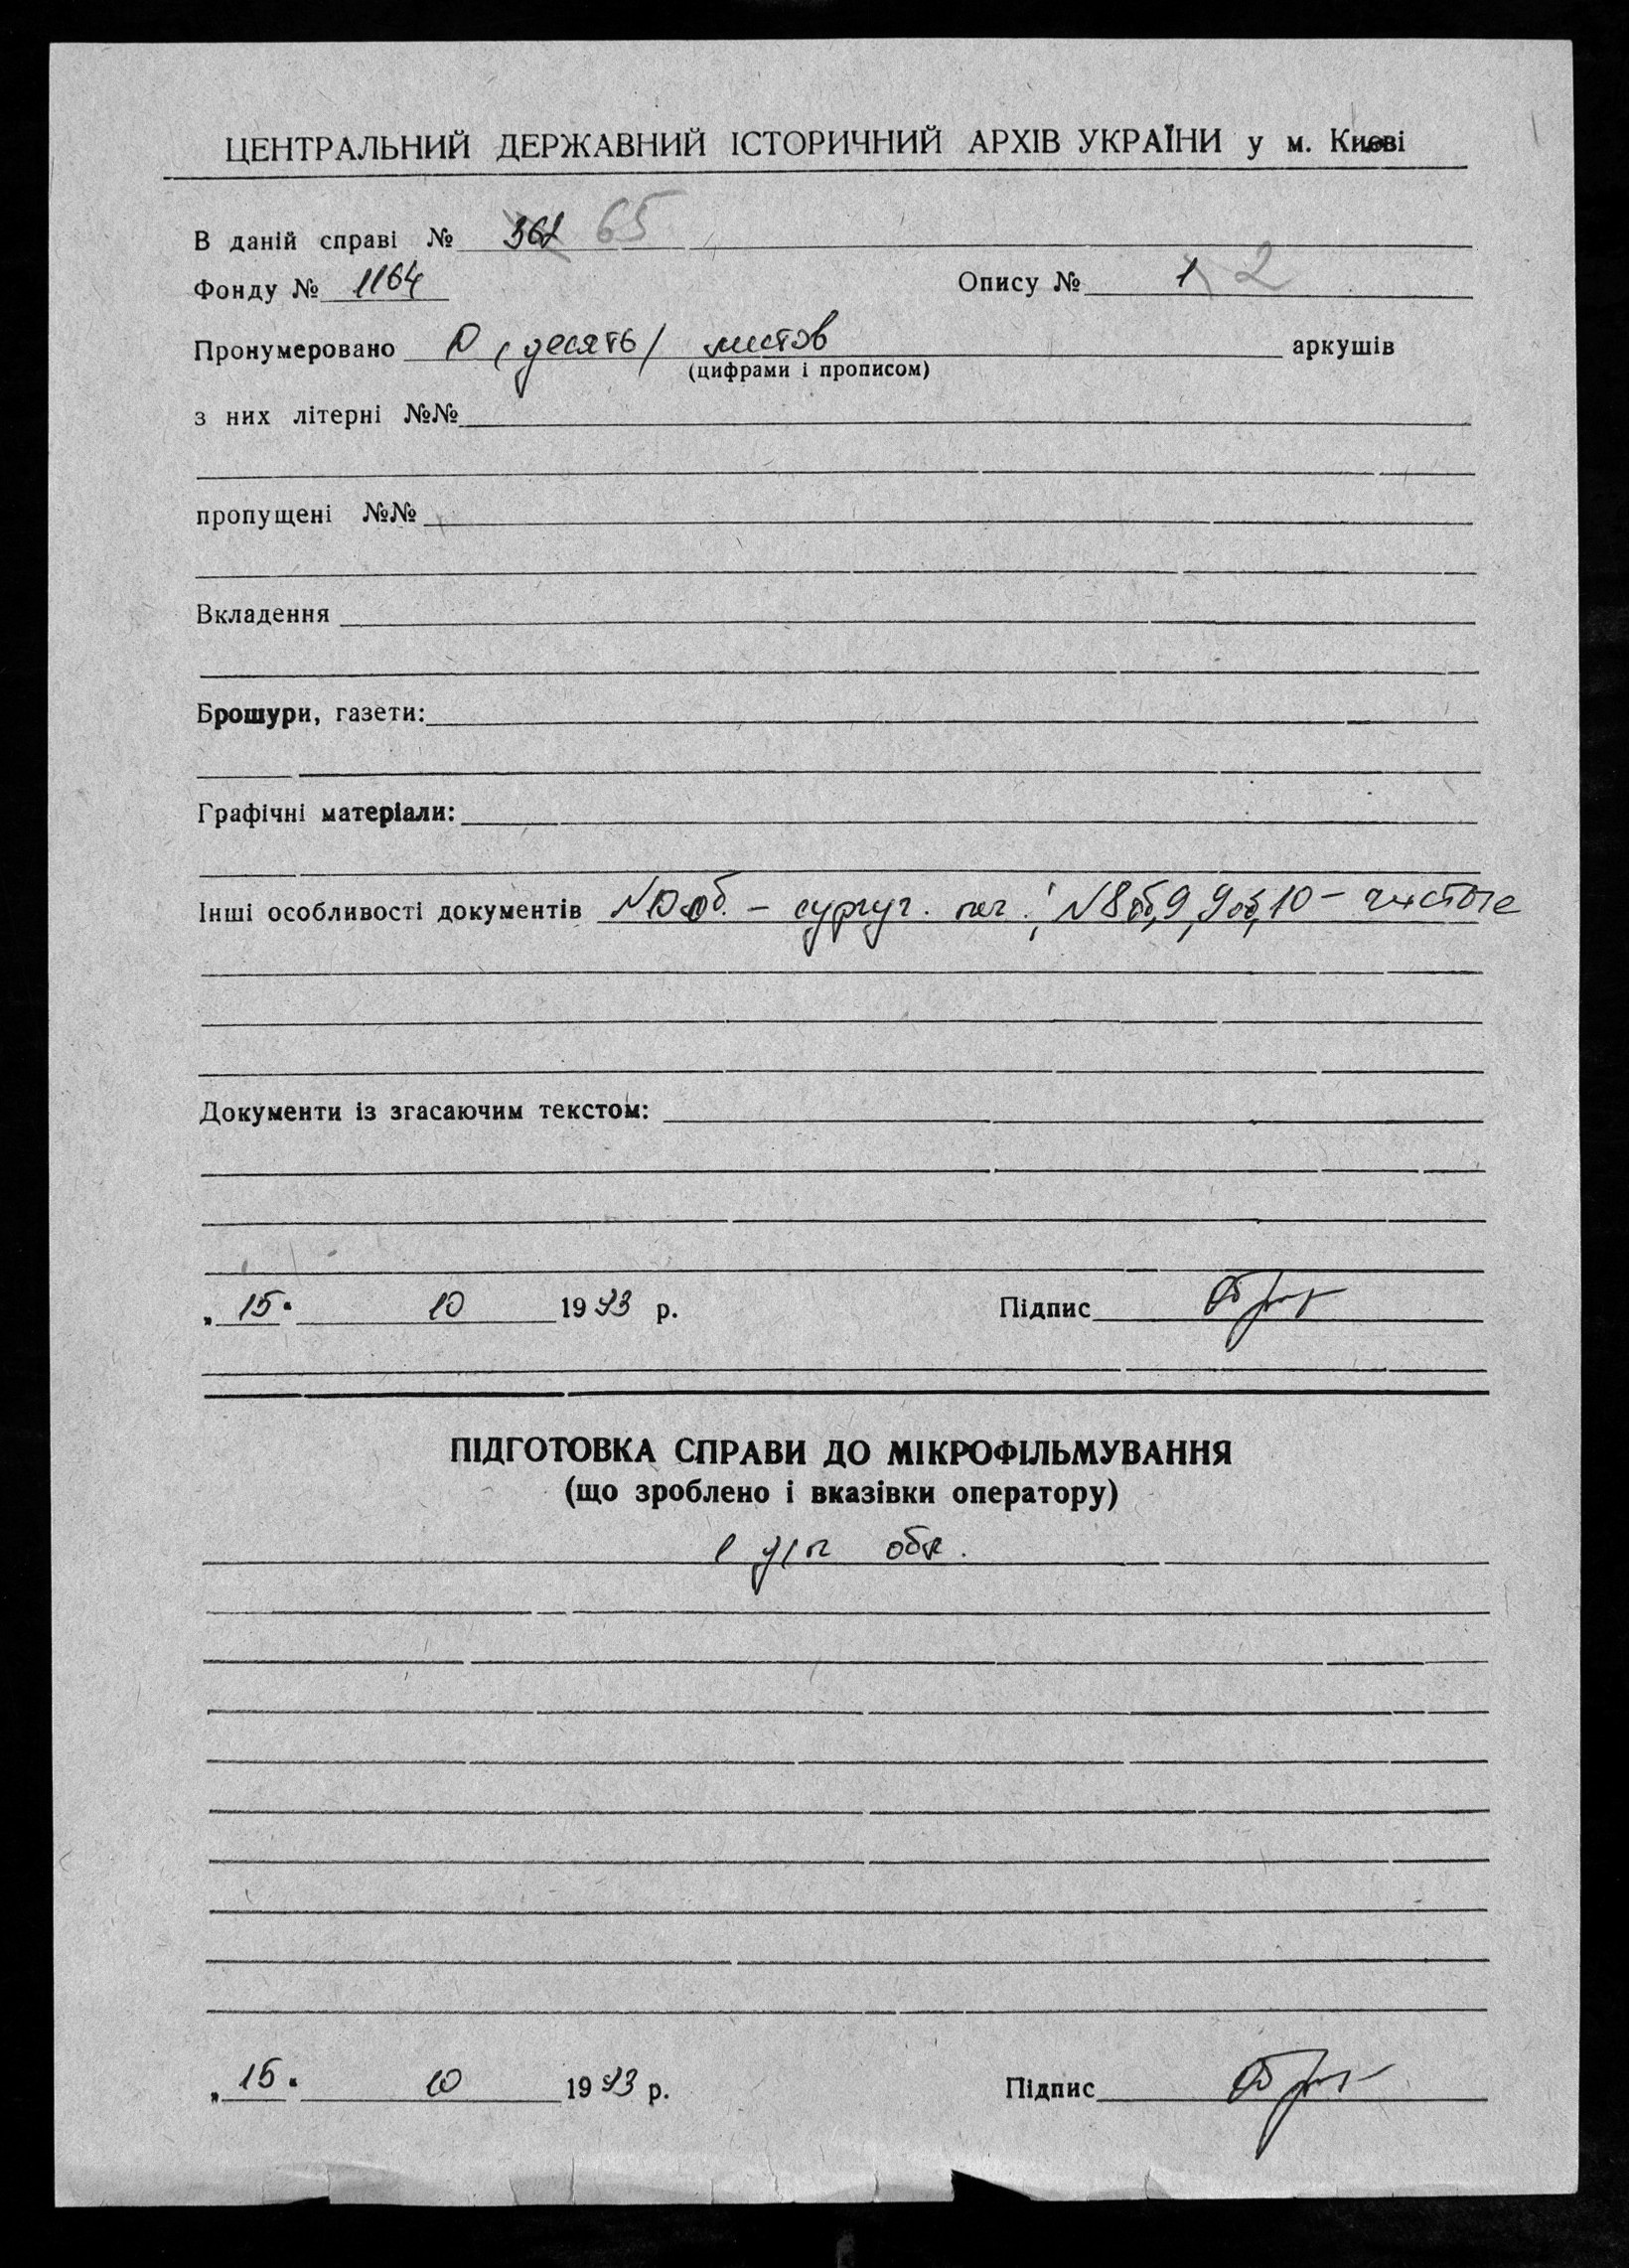 ЦЕНТРАЛЬНИЙ ДЕРЖАВНИЙ ІСТОРИЧНИЙ АРХІВ УКРАЇНИ у м. Києві
В даній справі № 65
Фонду № 1164 Опису № 1 2
Пронумеровано 10 (десять) листов аркушів
(цифрами і прописом)
з них літерні №№
пропущені №№
Вкладення
Брошури, газети:
Графічні матеріали:
Інші особливості документів N10об. – сургуч. печ.; N8об,9,9об,10 – чистые
Документи із згасаючим текстом:
„ 15 “ 10 1993 р. Підпис
ПІДГОТОВКА СПРАВИ ДО МІКРОФІЛЬМУВАННЯ
(що зроблено і вказівки оператору)
„ 15 “ 10 1993 р. Підпис